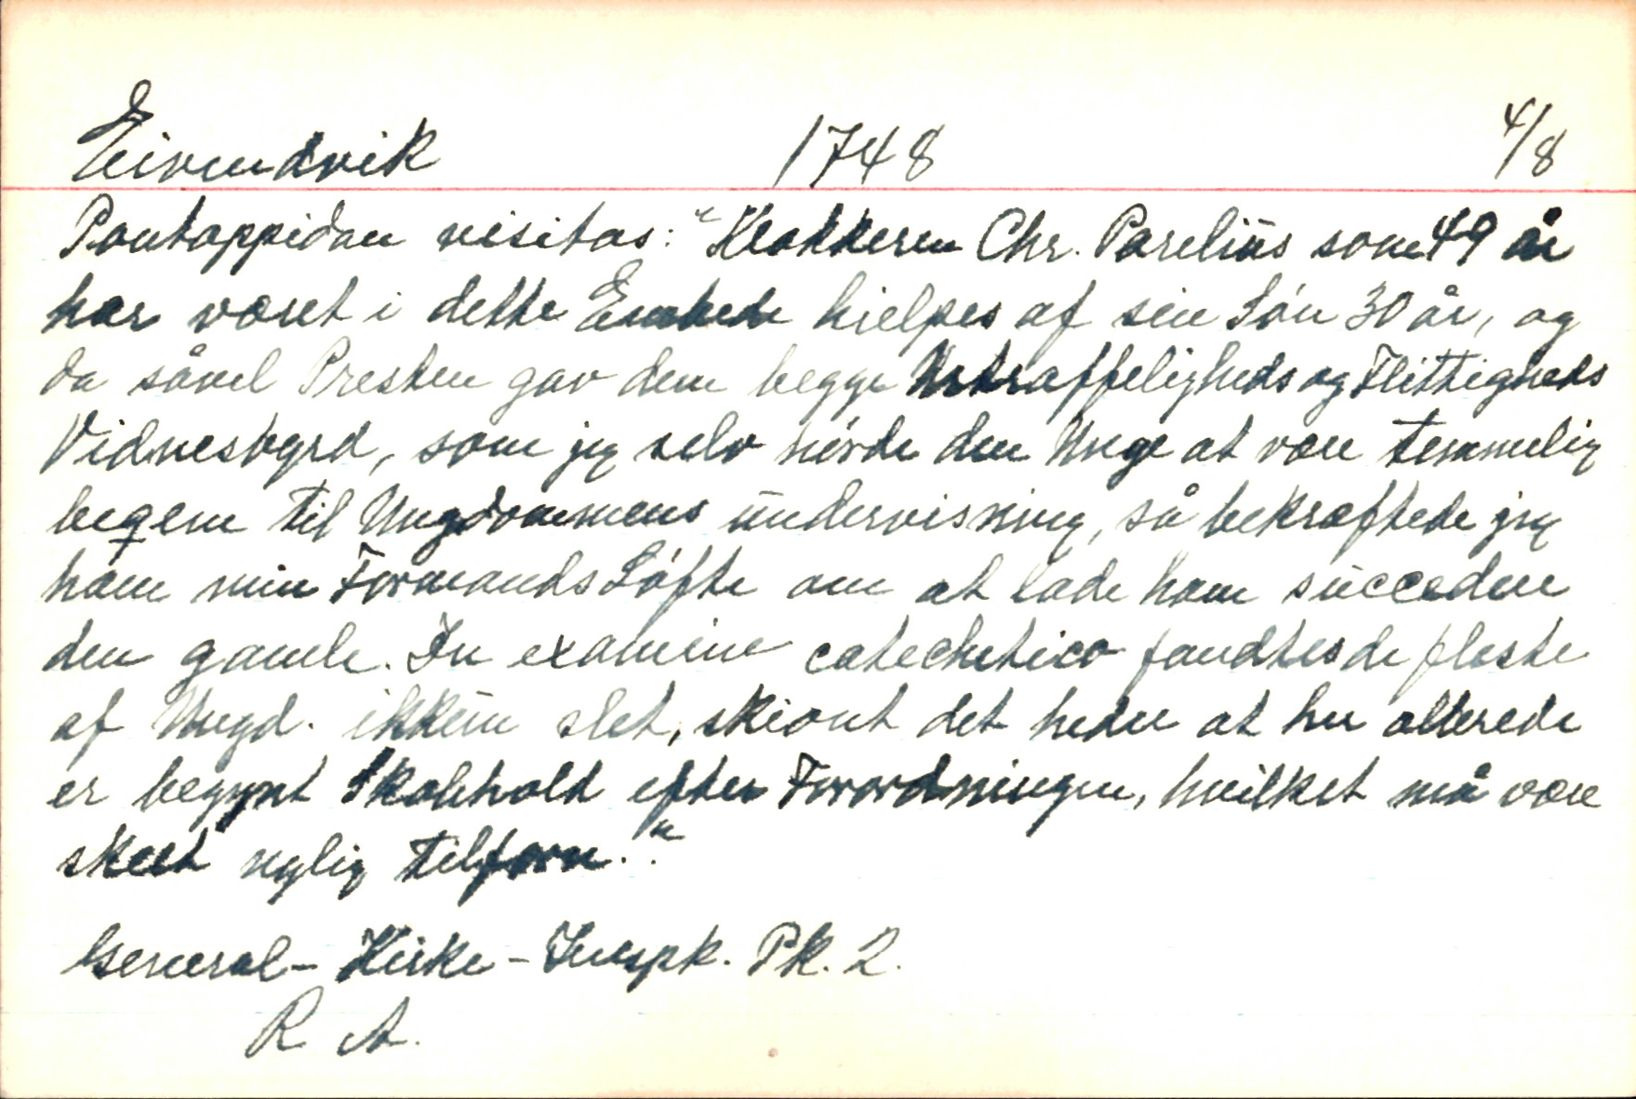 Eivendvik 1748 4/8
Pontoppidan visitas: "Klokkeren Chr. Parelius som 49 år
har været i dette Embede hielpes af sin Sön 30 år, og
da såvel Presten gav dem begge Ustraffeligheds og Flittigheds
Vidnesbyrd, som jeg selv hörde den Unge at være temmelig
beqem til Ungdommens undervisning, så bekræftede jeg
ham min Formands Löfte om at lade ham succedere
den gamle. In examine catechetico fandtes de fleste
af Ungd. ikkun slet, skiönt det heder at her allerede
er begynt Skolehold efter Forordningen, hvilket må være
skeet nylig tilforn."
General-Kirke-Inspk. Pk. 2.
R A.